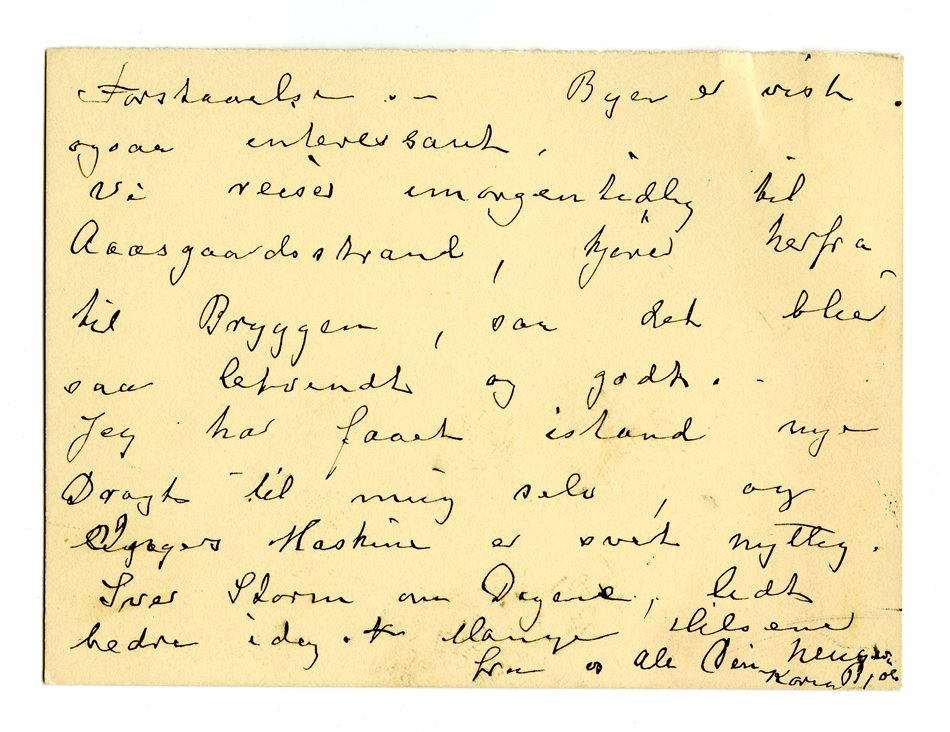 Forstaaelse . – Byen er vist
ogsaa interessant,
Vi reiser imorgentidlig til
Aaasgaardsstrand, kjører herfra
til Bryggen, saa det blir
saa letvendt og godt. –
Jeg har faaet istand nye
Dragt til mig selv, og
Maskine er svært nyttig.
Svær Storm om Dagene, lidt
bedre idag. Mange Hilsener
fra os alle Din hengivne
Karen